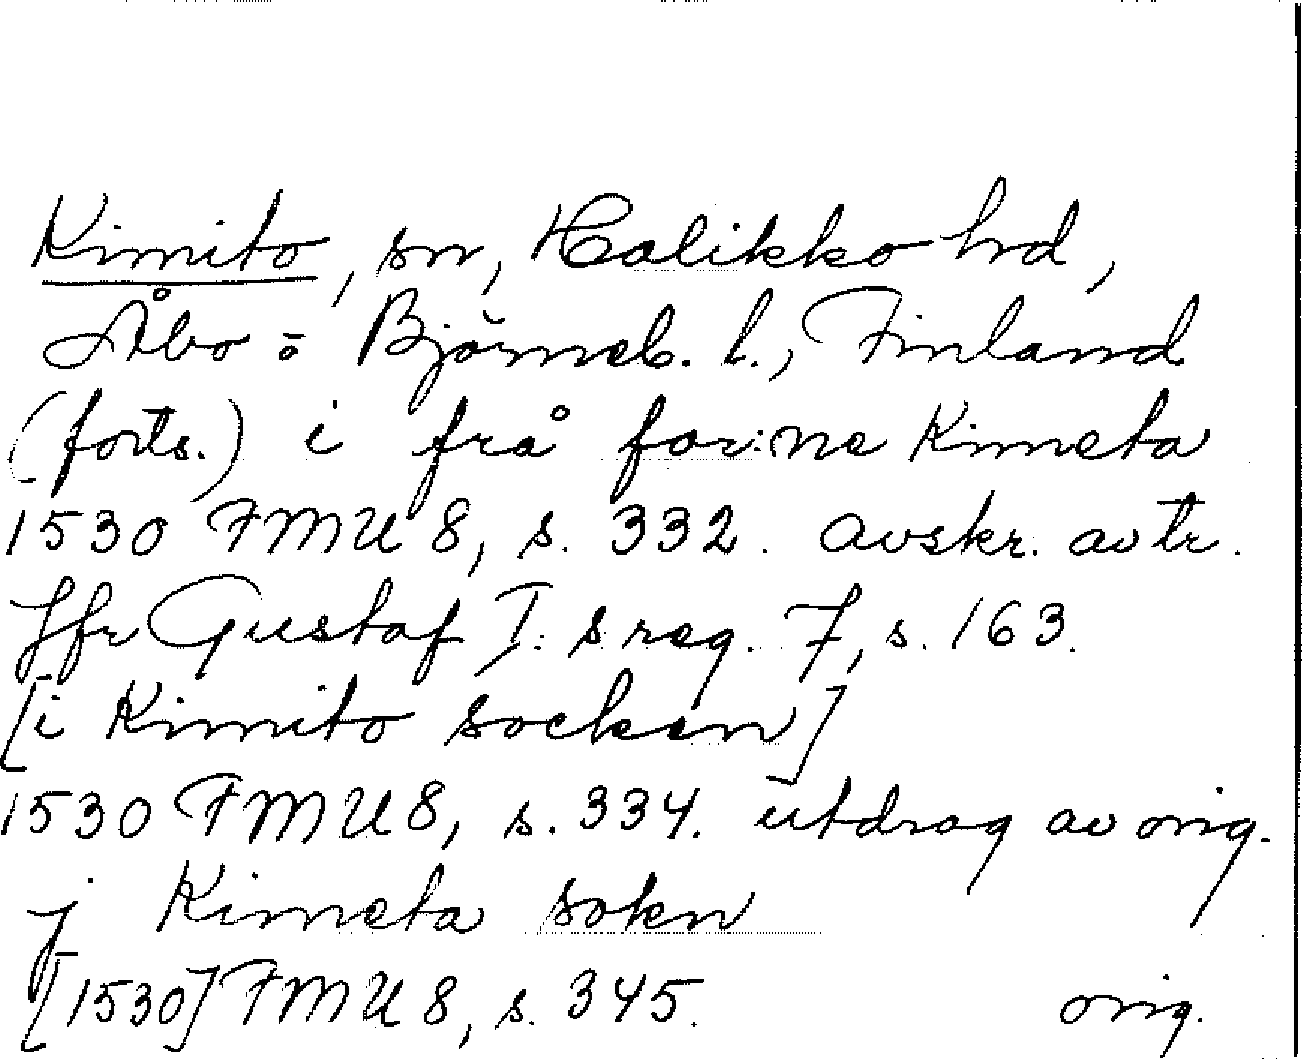 Kimito, sn, Halikko hd,
Åbo = Björneb. l., Finland
(forts.) i frå for:ne Kimeta
1530 FMU 8, s. 332. avskr. av tr.
Jfr Gustaf I:s reg. 7, s. 163.
[i Kimito socken]
1530 FMU 8, s. 334. utdrag av orig.
j Kimeta sokn
[1530] FMU 8, s. 345. orig.